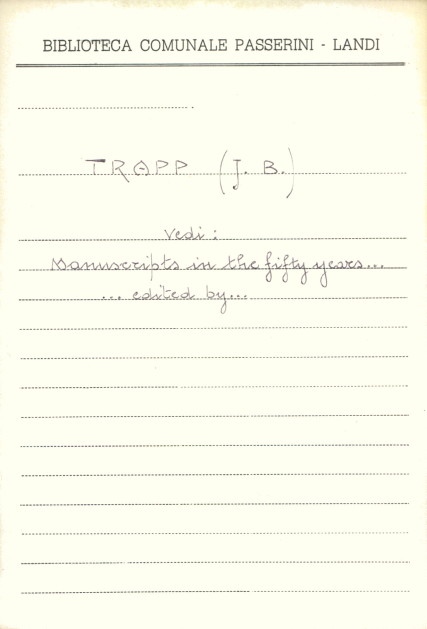 BIBLIOTECA COMUNALE PASSERINI - LANDI
TRAPP (J. B.)
Vedi:
Manuscripts in the fifty years...
... edited by...